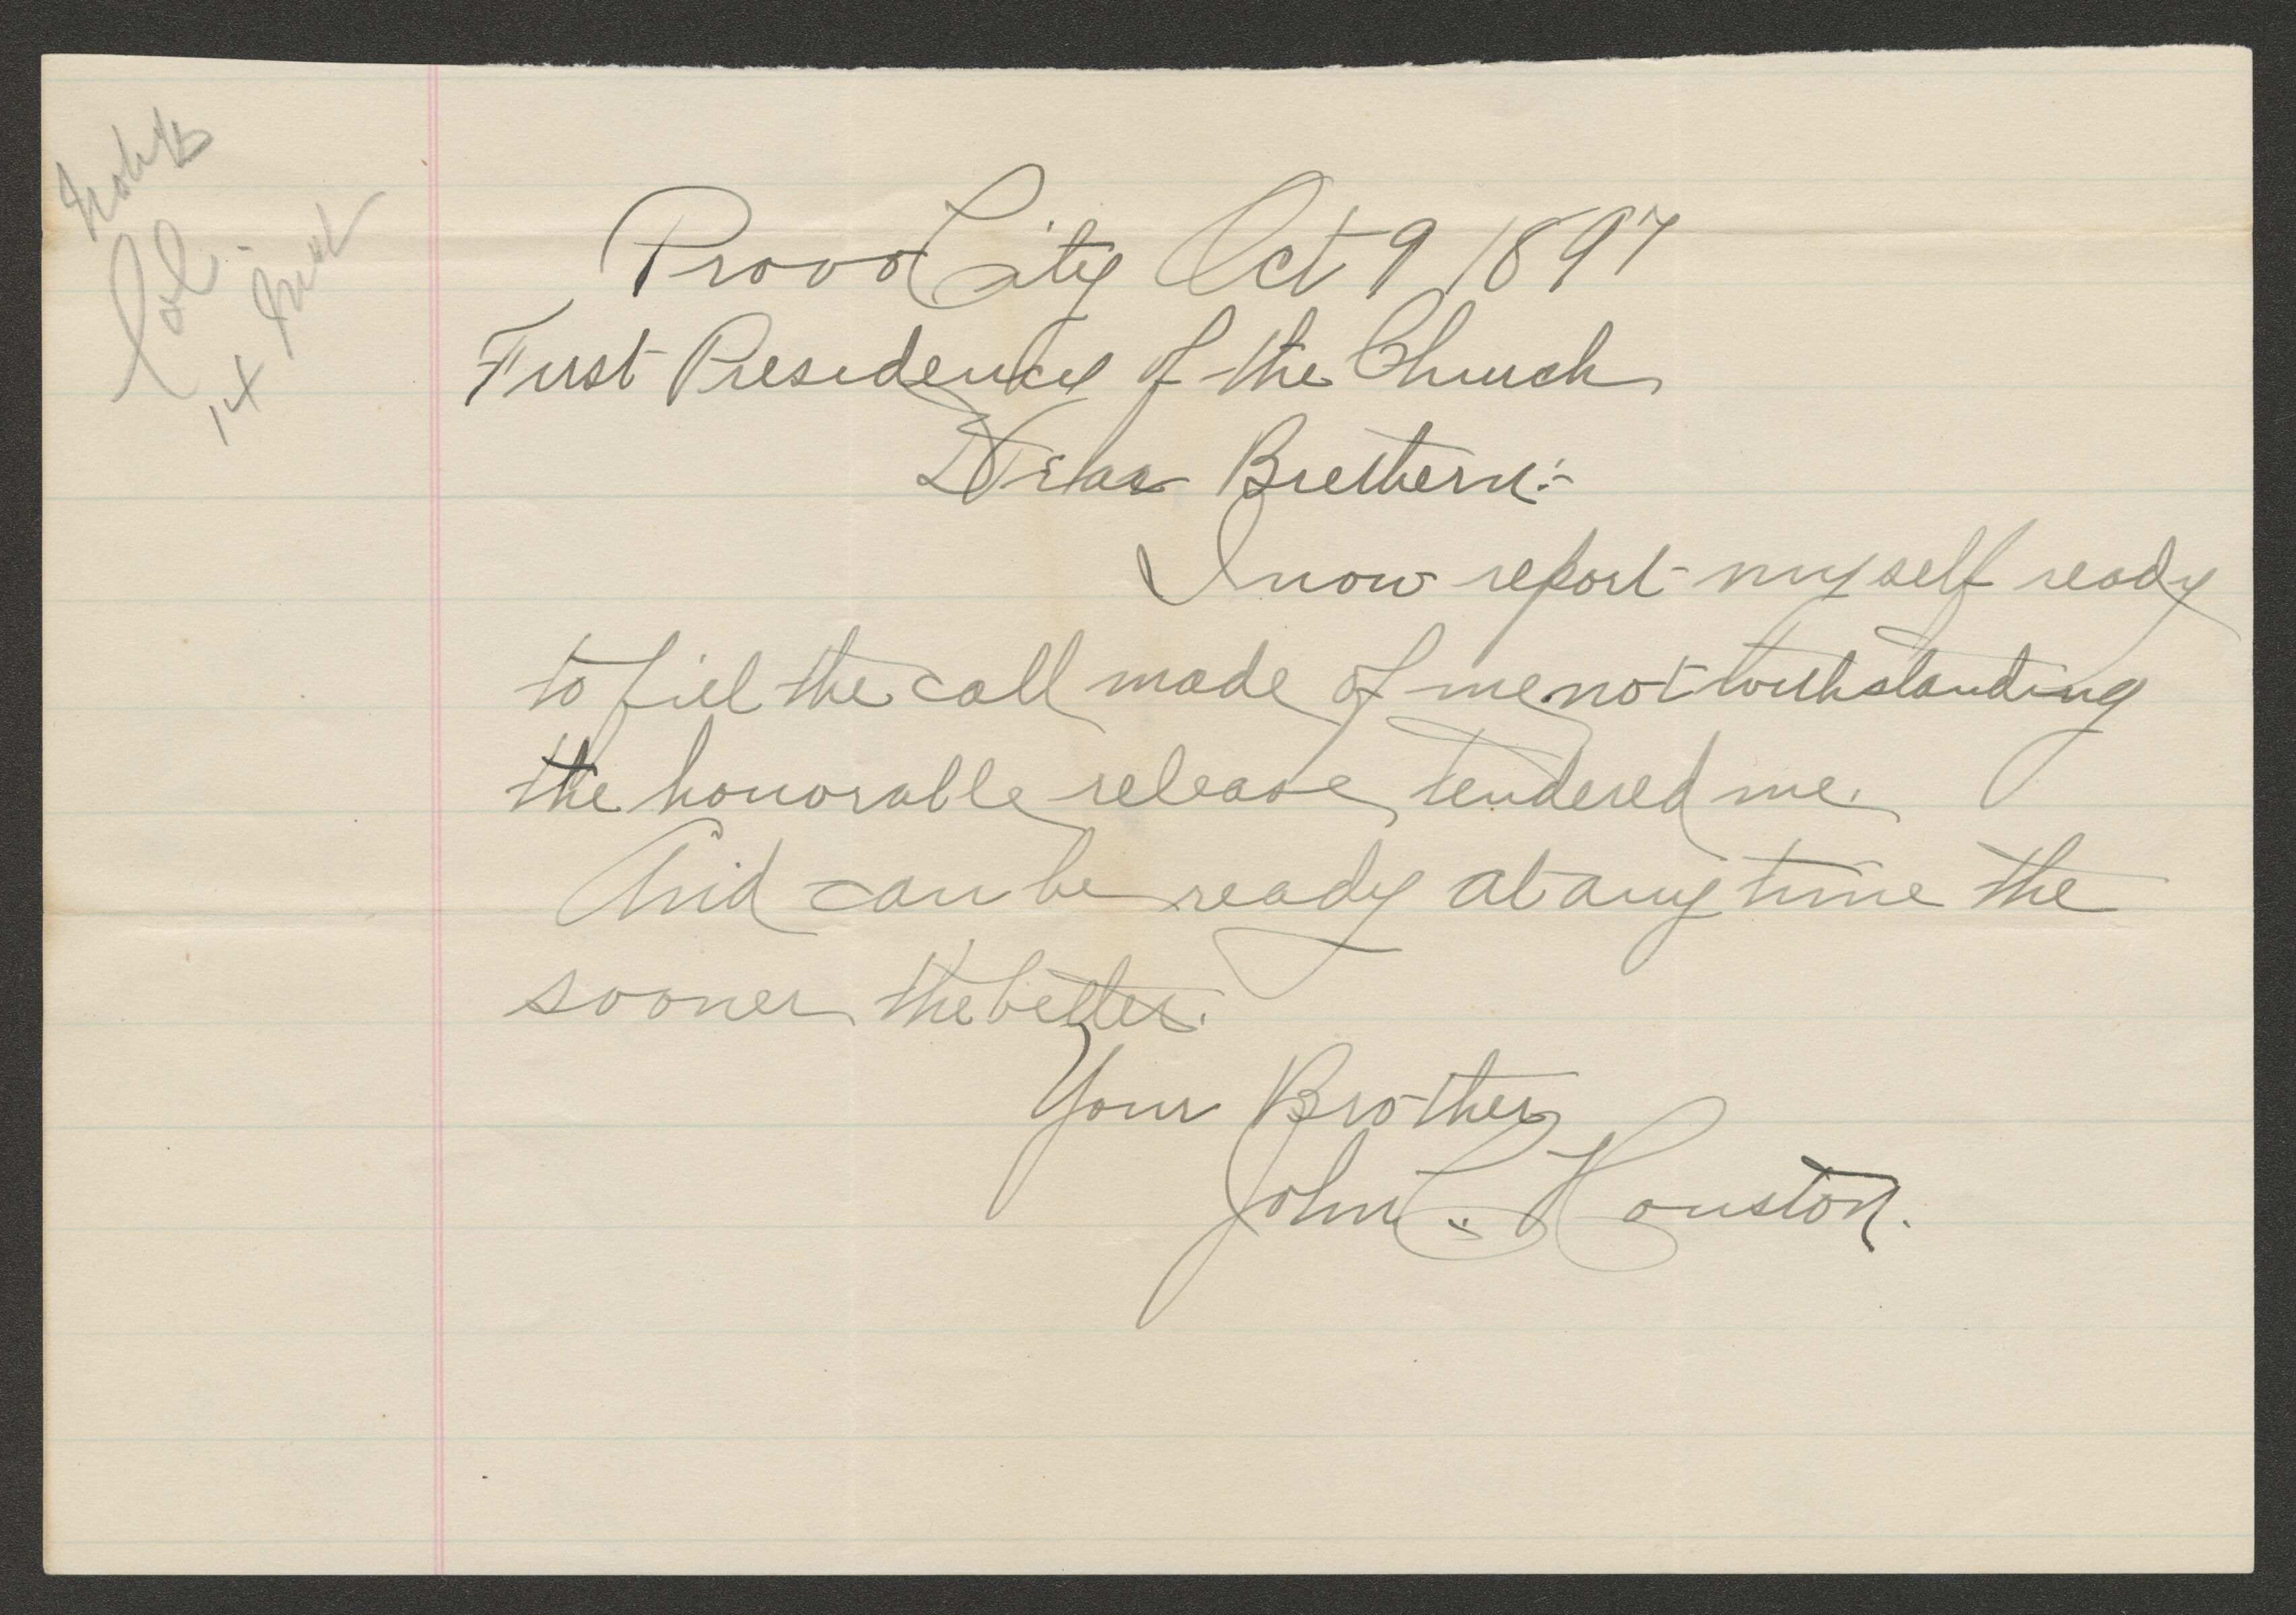 Col.
14 Inst
Provo City Oct 9 1897
First Presidency of the Church
Dear Brethern:-
I now report myself ready
to fill the call made of me notwithstanding
the honorable release, tendered me.
And can be ready at any time the
sooner the better.
Your Brother
John C. Houston.